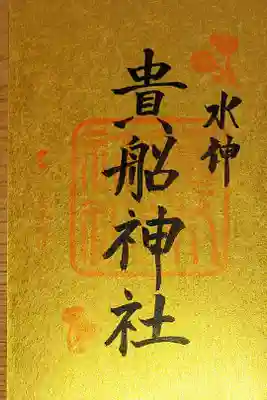 水神
貴船神社